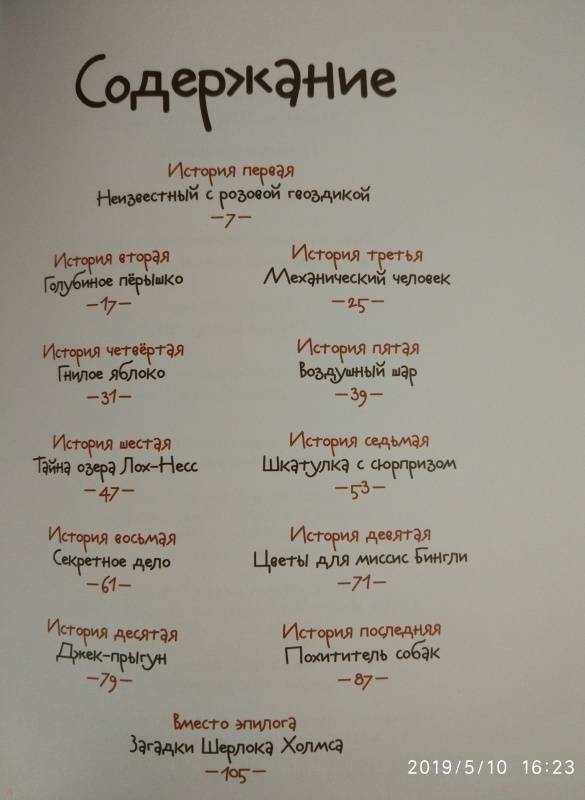 Содержание
История первая
Неизвестный с розовой гвоздикой
—7—
История вторая
Голубиное пёрышко
—17—
История третья
Механический человек
—25—
История четвёртая
Гнилое яблоко
—31—
История пятая
Воздушный шар
—39—
История шестая
Тайна озера Лох-Несс
—47—
История седьмая
Шкатулка с сюрпризом
—53—
История восьмая
Секретное дело
—61—
История девятая
Цветы для миссис Бингли
—71—
История десятая
Джек-прыгун
—79—
История последняя
Похититель собак
—87—
Вместо эпилога
Загадки Шерлока Холмса
—105—
2019/5/10 16:23